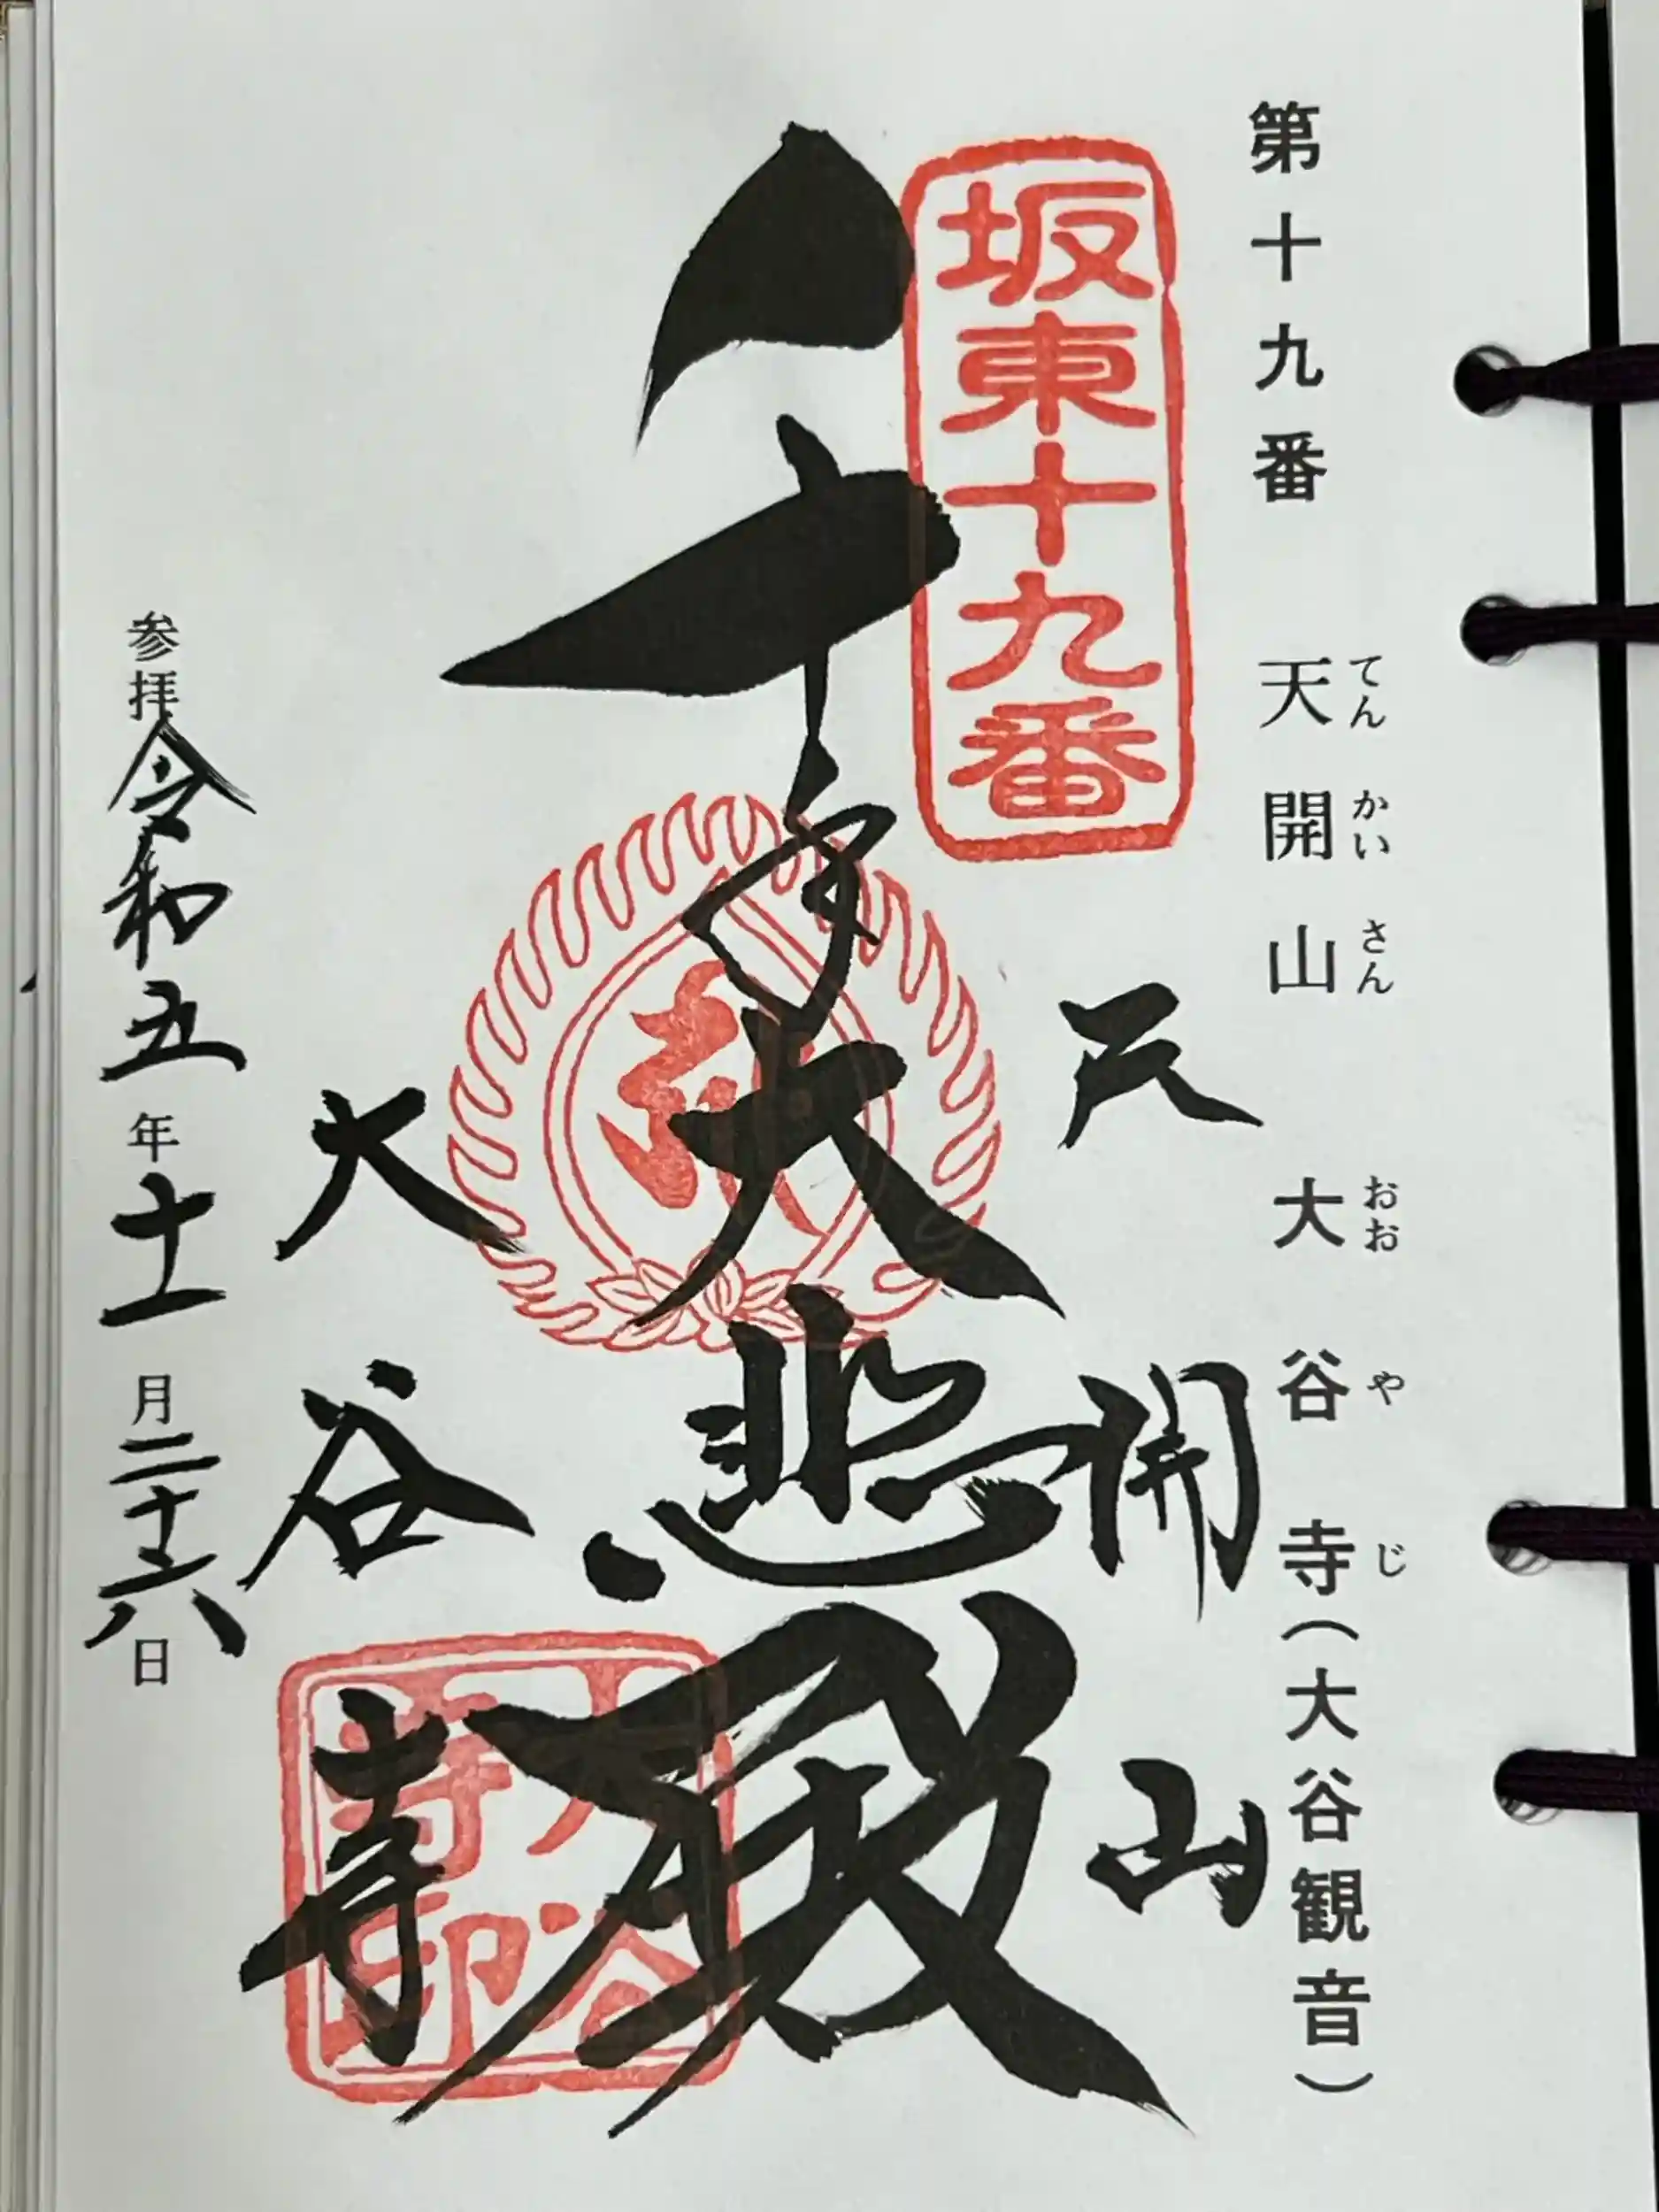 第十九番 天開山 大谷寺(大谷観音)
てんかいさん おおやじ
坂東十九番
天開山
大悲殿
大谷寺
大谷寺印
参拝令和五年十一月二十六日